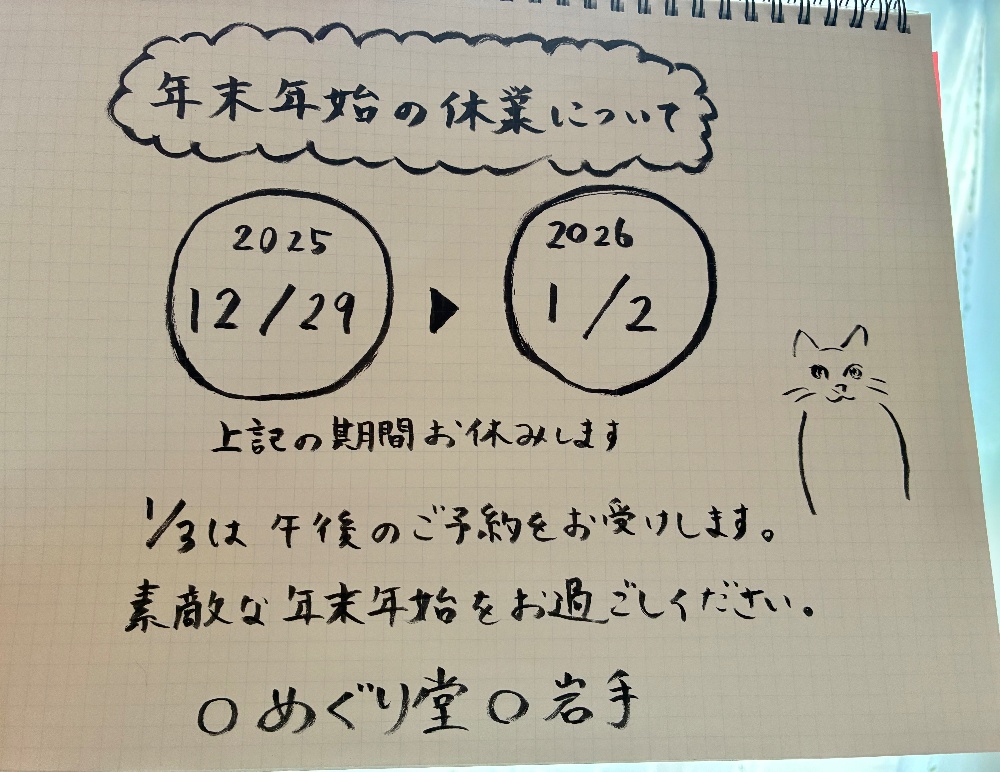 年末年始の休業について
2025 2026
12/29 ▶ 1/2
上記の期間お休みします
1/3は 午後のご予約をお受けします。
素敵な年末年始をお過ごしください。
○めぐり堂○岩手